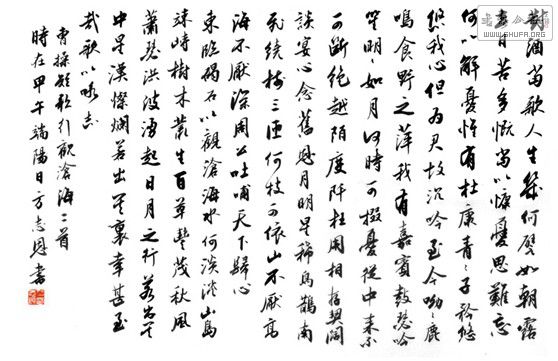 對酒當歌人生幾何譬如朝露
去日苦多慨當以慷憂思難忘
何以解憂惟有杜康青〻子衿悠
悠我心但为君故沉吟至今呦〻鹿
鳴食野之萍我有嘉賓鼓瑟吹
笙明〻如月何時可掇憂從中来不
可斷絶越陌度阡枉用相存契闊
談宴心念舊恩月明星稀烏鵲南
飛繞樹三匝何枝可依山不厭高
海不厭深周公吐哺天下歸心
東臨碣石以觀滄海水何淡淡山島
竦峙樹木叢生百草豐茂秋風
蕭瑟洪波湧起日月之行若出其
中星漢燦爛若出其裏幸甚至
哉歌以咏志
曹操短歌行觀滄海二首
時在甲午端陽日方志恩書
WWW.SHUFA.ORG